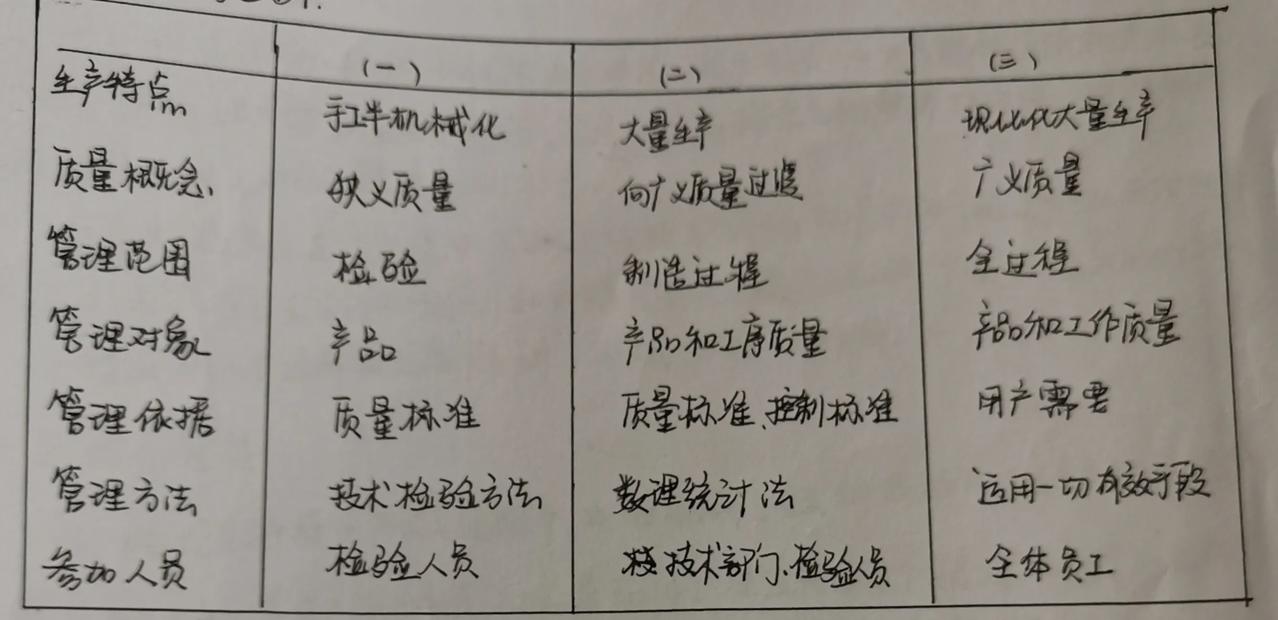 （一） （二） （三）
生产特点 手工半机械化 大量生产 现代化大量生产
质量概念 狭义质量 向广义质量过渡 广义质量
管理范围 检验 制造过程 全过程
管理对象 产品 产品和工序质量 产品和工作质量
管理依据 质量标准 质量标准、控制标准 用户需要
管理方法 技术检验方法 数理统计法 运用一切有效手段
参加人员 检验人员 技术部门、检验员 全体员工